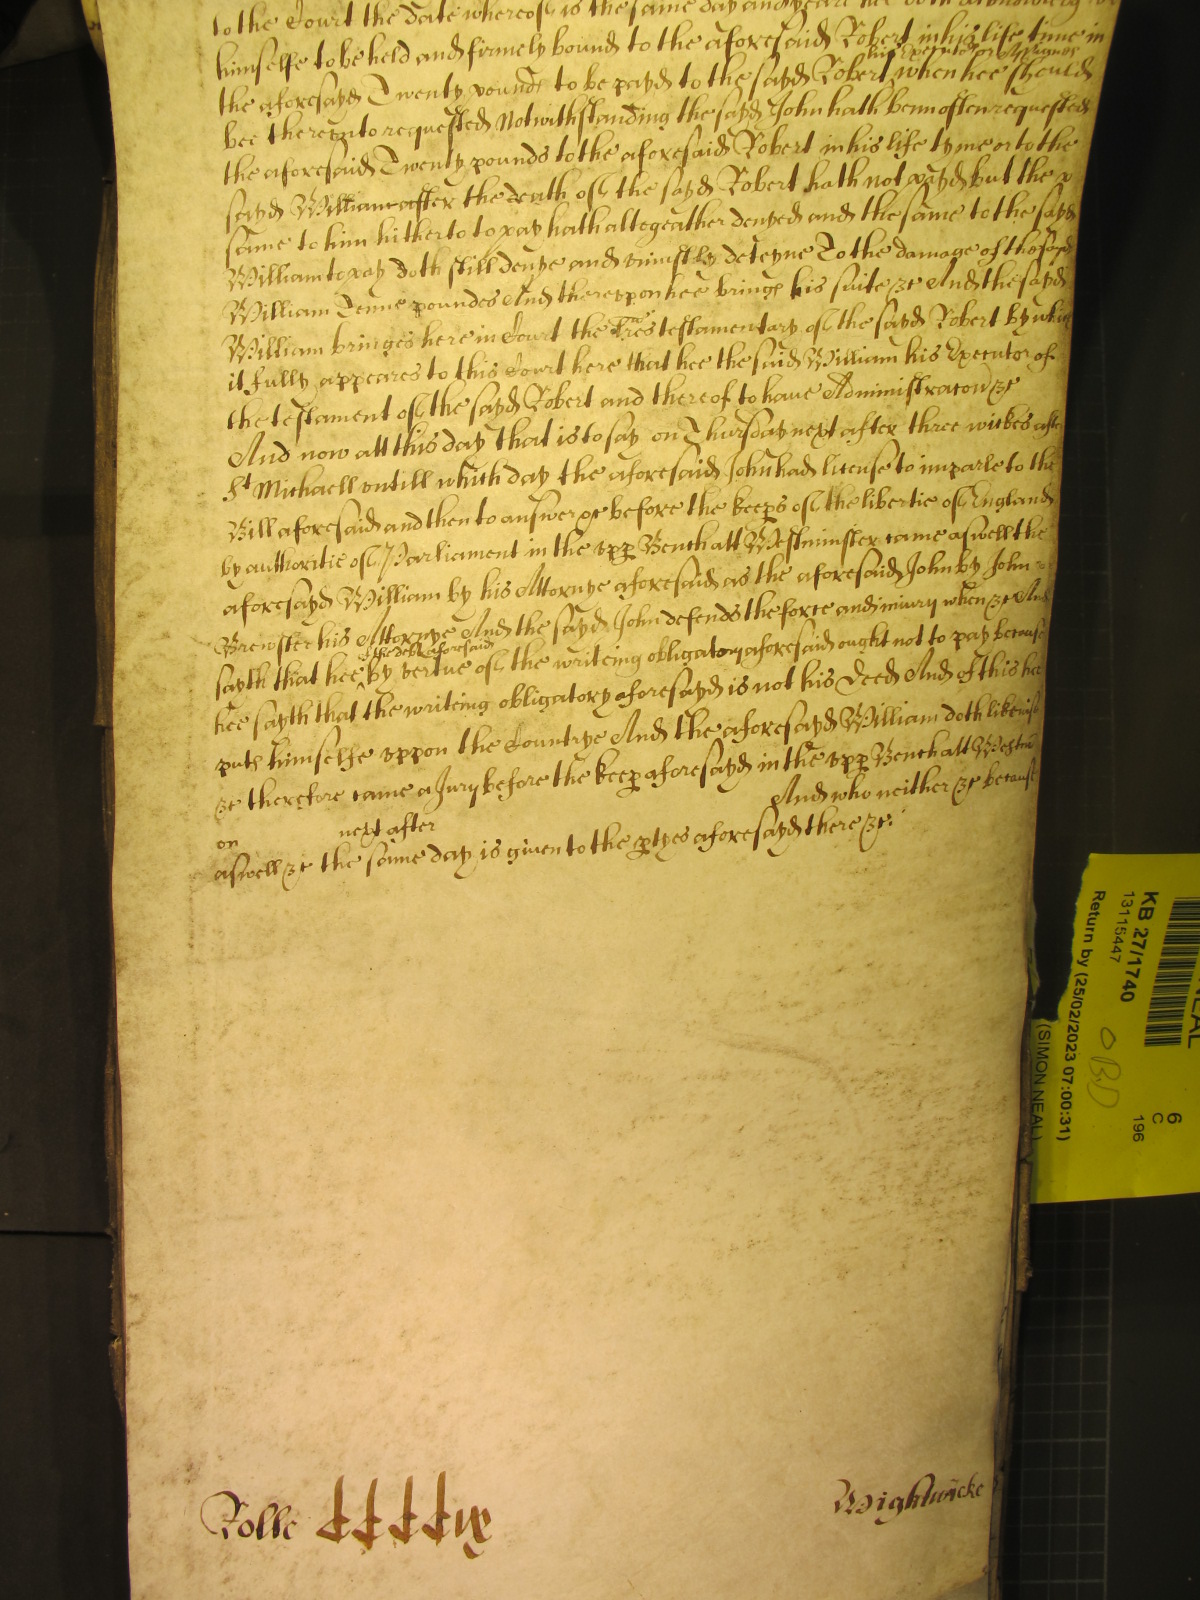 to the Court the date whereof is the same day and yeare
himselfe to be held and firmely bound to the aforesaid Robert in his life time in
his Executors or Assignes
the aforesayd Twenty pounds to be payd to the sayd Robert when hee should
bee thereunto requested Notwithstanding the sayd John hath benn often requested
the aforesaid Twenty pounds to the aforesaid Robert in his life tyme or to the
sayd William after the death of the sayd Robert hath not payd but the
same to him hitherto to pay hath altegeather denyed and the same to the sayd
William to pay doth still denye and uniustly deteyne To the damage of the sayd
William Tenne poundes And thereuppon hee brings his suite &c And the sayd
William bringes here in Court the Lres testamentary of the sayd Robert by which
it fully appeares to this Court here that hee the said William his Executor of
the testament of the sayd Robert and thereof to have Administracon &c
And now att this day that is to say on Thursday next after three weekes after
St Michaell untill which day the aforesaid John had license to imparle to the
Bill aforesaid and then to answer &c before the keeps of the libertie of England
by authoritie of Parliament in the upp Bench att Westminster came aswell the
aforesayd William by his Attornye aforesaid as the aforesaid John by John
Brewster his Attornye And the sayd John defends the force and iniury when &c And
the debt aforesaid
sayth that hee by vertue of the writeing obligatory aforesaid ought not to pay because
hee sayth that the writeing obligatory aforesayd is not his Deed And of this hee
puts himselfe uppon the Countrye And the aforesayd William doth likewise
&c therefore came a Jury before the keep aforesayd in the upp Bench att Westm
on next after And who neither &c because
aswell &c the same day is given to the ptyes aforesayd there &c
Rolle
Wightwicke
KB 27/1740
13115447
Return by (25/02/2023 07:00:31)
(SIMON NEAL)
NEAL
6
C
196